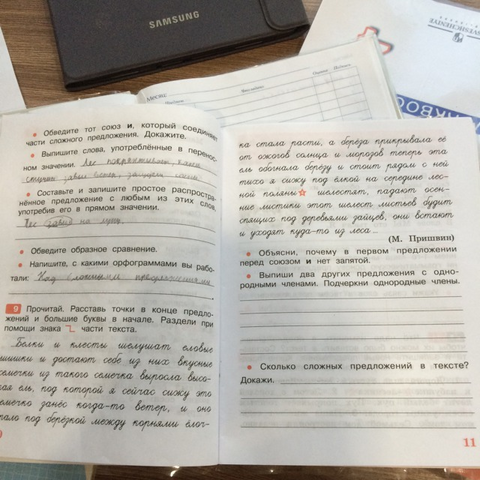 SAMSUNG
Обведите тот союз и, который соединяет
части сложного предложения. Докажите.
Выпишите слова, употреблённые в перенос-
ном значении. Лес
Составьте и запишите простое распростра-
нённое предложение с любым из этих слов,
употребив его в прямом значении.
Обведите образное сравнение.
Напишите, с какими орфограммами вы рабо-
тали: Над
9 Прочитай. Расставь точки в конце предло-
жений и большие буквы в начале. Раздели при
помощи знака части текста.
Белки и клесты шелушат еловые
шишки и достают себе из них вкусные
семечки из такого семечка выросла высо-
кая ель, под которой я сейчас сижу это
семечко занёс когда-то ветер, и оно
пало под берёзкой между корнями ёлоч-
ка стала расти, а берёза прикрывала её
от ожогов солнца и морозов теперь эта
ель обогнала берёзу и стоит рядом с ней
тихо я сижу под ёлкой на середине лес-
ной поляны шелестят, падают осен-
ние листики этот шелест листьев будит
спящих под деревьями зайцев, они встают
и уходят куда-то из леса...
(М. Пришвин)
Объясни, почему в первом предложении
перед союзом и нет запятой.
Выпиши два других предложения с одно-
родными членами. Подчеркни однородные члены.
Сколько сложных предложений в тексте?
Докажи.
11